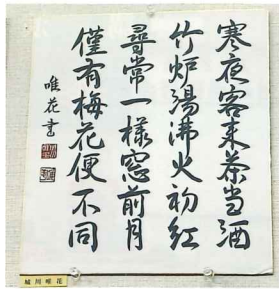 寒夜客来茶当酒
竹炉湯沸火初紅
尋常一様窓前月
僅有梅花便不同
唯花書
城川唯花